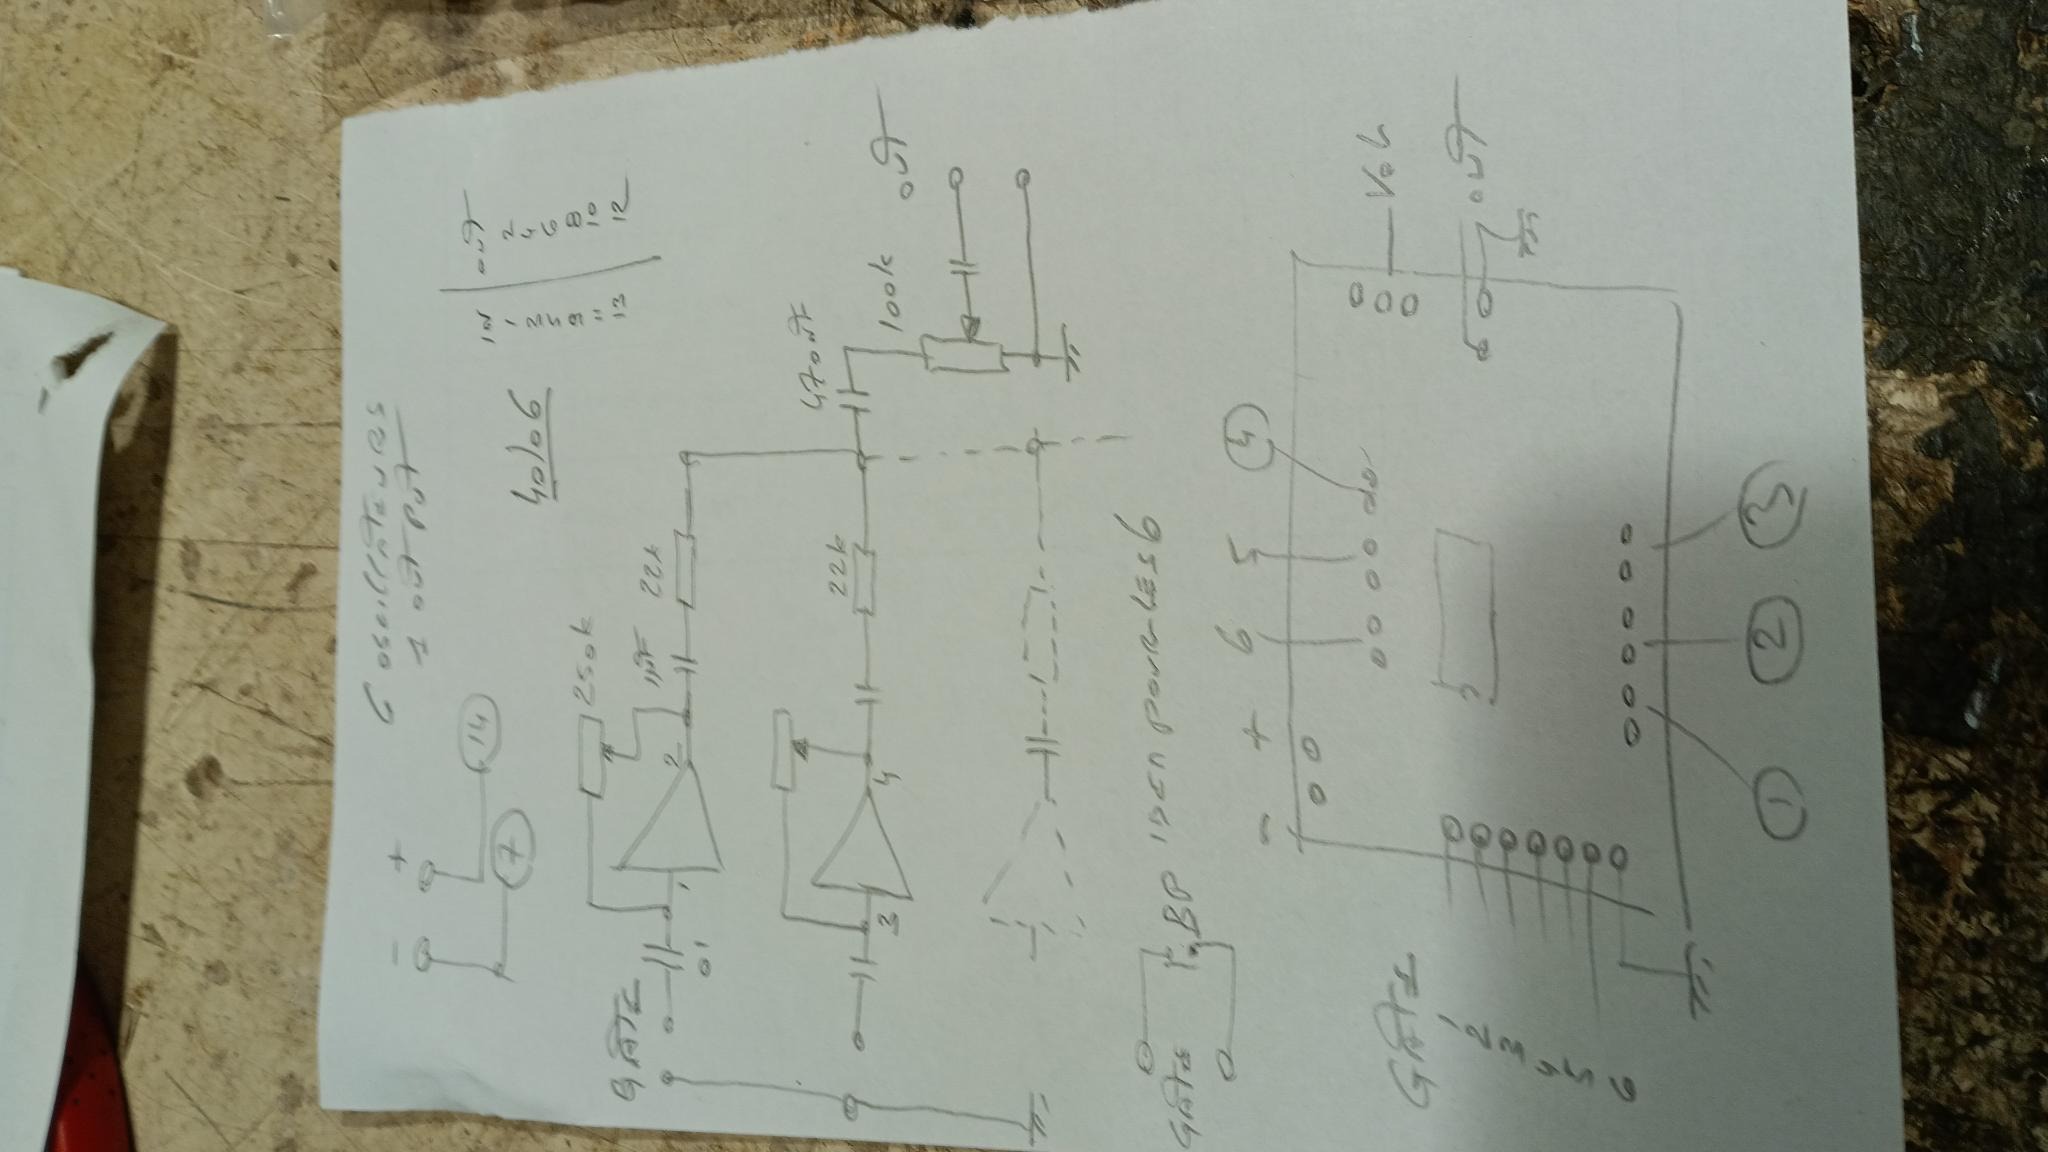 6 oscillateurs
1 out put
- +
14
7
40106
in out
1 2
3 4
5 6
9 8
11 10
13 12
250k
GATE
01
1
2
1µF
22k
3
4
22k
470nF
100k
out
GATE
BP
idem pour les 6
- +
6 5 4
Vol
GATE
1
2
3
4
5
6
out
1 2 3